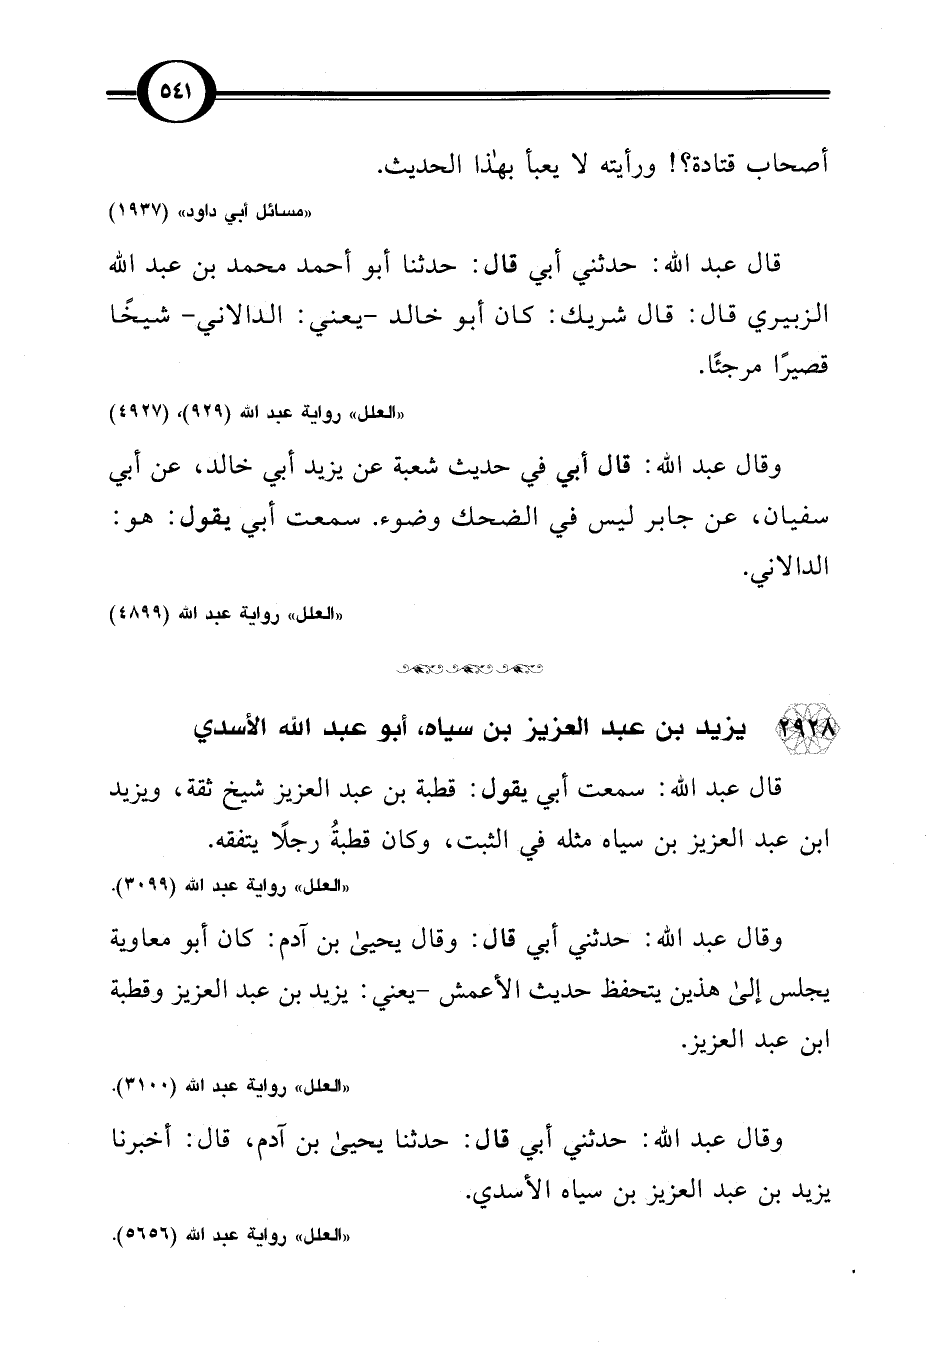 ٥٤١
أصحاب قتادة؟! ورأيته لا يعبأ بهٰذا الحديث.
«مسائل أبي داود» (١٩٣٧)
قال عبد الله: حدثني أبي قال: حدثنا أبو أحمد محمد بن عبد الله
الزبيري قال: قال شريك: كان أبو خالد -يعني: الدالاني- شيخًا
قصيرًا مرجئًا.
«العلل» رواية عبد الله (٩٢٩)، (٤٩٢٧)
وقال عبد الله: قال أبي في حديث شعبة عن يزيد أبي خالد، عن أبي
سفيان، عن جابر ليس في الضحك وضوء. سمعت أبي يقول: هو:
الدالاني.
«العلل» رواية عبد الله (٤٨٩٩)
٢٩٢٨ يزيد بن عبد العزيز بن سياه، أبو عبد الله الأسدي
قال عبد الله: سمعت أبي يقول: قطبة بن عبد العزيز شيخ ثقة، ويزيد
ابن عبد العزيز بن سياه مثله في الثبت، وكان قطبةُ رجلًا يتفقه.
«العلل» رواية عبد الله (٣٠٩٩).
وقال عبد الله: حدثني أبي قال: وقال يحيىٰ بن آدم: كان أبو معاوية
يجلس إلىٰ هذين يتحفظ حديث الأعمش -يعني: يزيد بن عبد العزيز وقطبة
ابن عبد العزيز.
«العلل» رواية عبد الله (٣١٠٠).
وقال عبد الله: حدثني أبي قال: حدثنا يحيىٰ بن آدم، قال: أخبرنا
يزيد بن عبد العزيز بن سياه الأسدي.
«العلل» رواية عبد الله (٥٦٥٦).